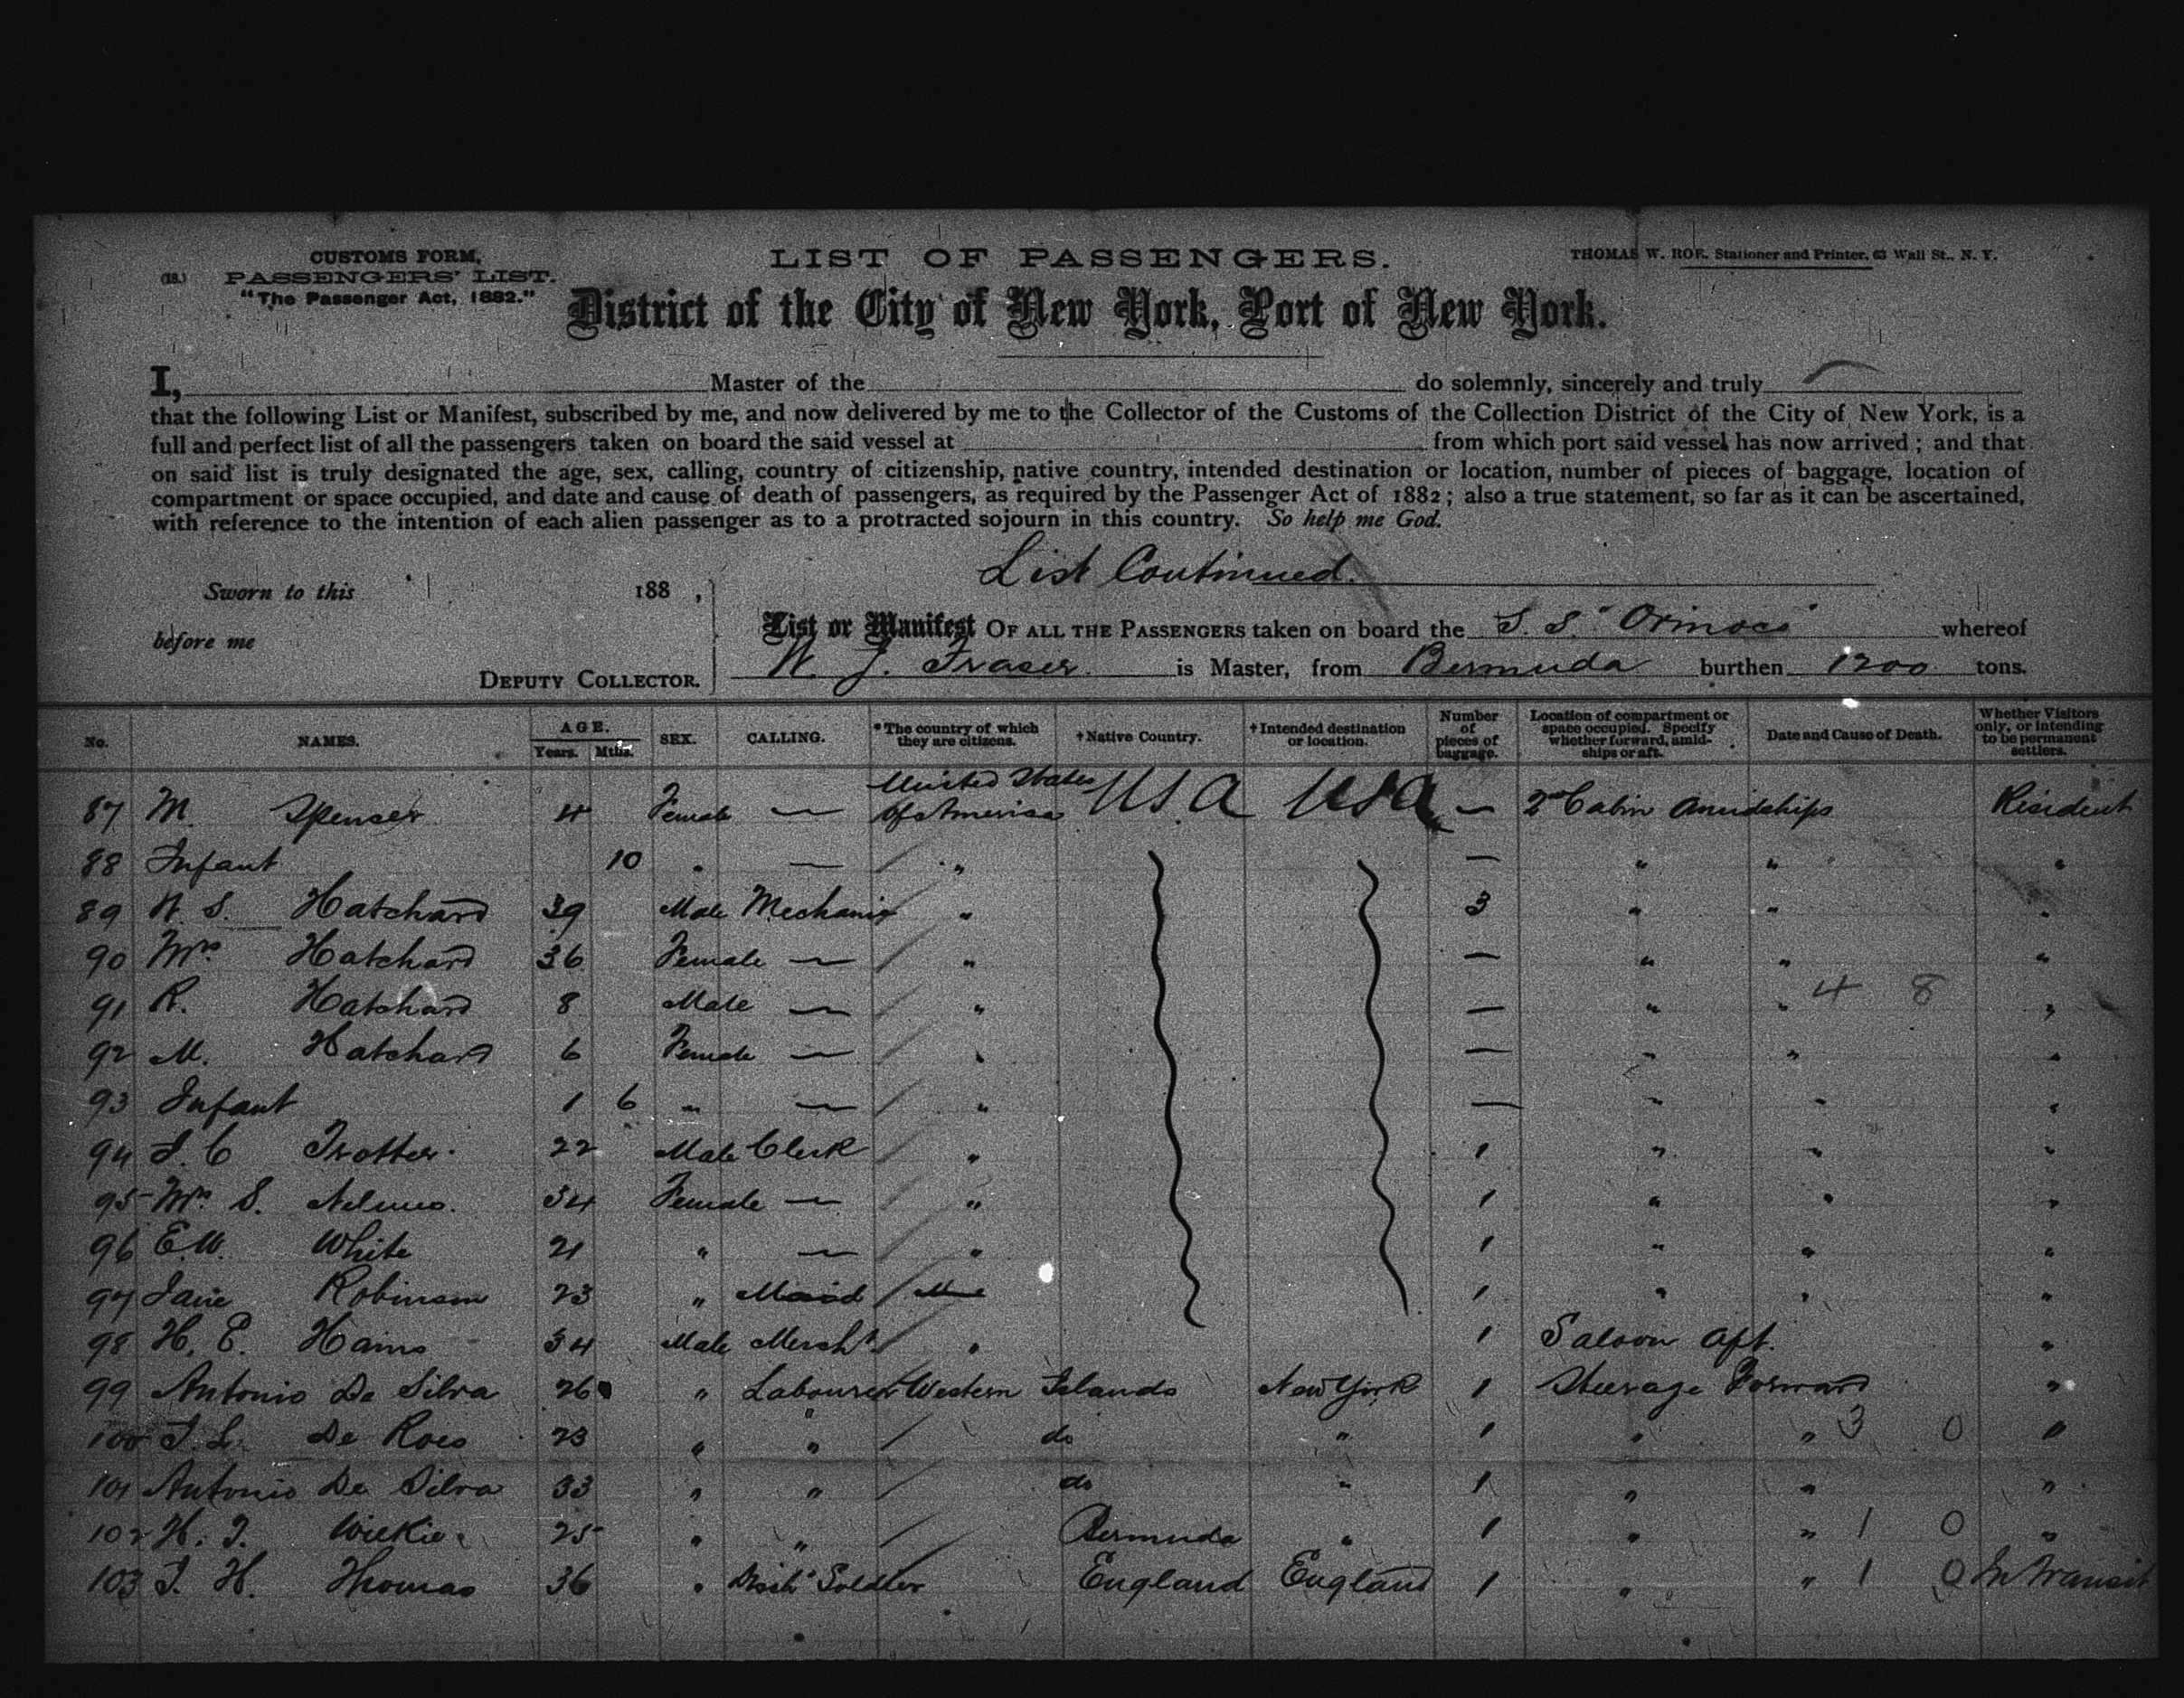 CUSTOMS FORM,
(18.) PASSENGERS' LIST.
"The Passenger Act, 1882."
LIST OF PASSENGERS.
THOMAS W. ROE, Stationer and Printer, 63 Wall St., N. Y.
District of the City of New York, Port of New York.
I, Master of the do solemnly, sincerely and truly
that the following List or Manifest, subscribed by me, and now delivered by me to the Collector of the Customs of the Collection District of the City of New York, is a
full and perfect list of all the passengers taken on board the said vessel at from which port said vessel has now arrived; and that
on said list is truly designated the age, sex, calling, country of citizenship, native country, intended destination or location, number of pieces of baggage, location of
compartment or space occupied, and date and cause of death of passengers, as required by the Passenger Act of 1882; also a true statement, so far as it can be ascertained,
with reference to the intention of each alien passenger as to a protracted sojourn in this country. So help me God.
List Continued.
Sworn to this 188 ,
before me
DEPUTY COLLECTOR.
List or Manifest OF ALL THE PASSENGERS taken on board the S. S. "Orinoco" whereof
W. J. Fraser. is Master, from Bermuda burthen 1200 tons.
No. NAMES. AGE. Years. Mths. SEX. CALLING. *The country of which they are citizens. †Native Country. †Intended destination or location. Number of pieces of baggage. Location of compartment or space occupied. Specify whether forward, amidships or aft. Date and Cause of Death. Whether Visitors only, or intending to be permanent settlers.
87 M. Spenser 4 Female — United States of America USA USA — 2nd Cabin Amidships Resident
88 Infant 10 " — " — " " "
89 W. S. Hatchard 39 Male Mechanic " 3 " " "
90 Mrs Hatchard 36 Female — " — " " "
91 R. Hatchard 8 Male — " — " " 4 8 "
92 M. Hatchard 6 Female — " — " " "
93 Infant 1 6 " — " — " " "
94 J. C Trotter. 22 Male Clerk " 1 " " "
95 Mrs. S. Nelmes. 34 Female — " 1 " " "
96 E.W. White 21 " — " 1 " " "
97 Jane Robinson 23 " Maid 1 " " "
98 H. E. Hains 34 Male Mercht. " 1 Saloon Aft. "
99 Antonio De Silva 26 " Labourer Western Islands New York 1 Steerage Forward "
100 J. L. De Rois 23 " " do " 1 " " 3 0 "
101 Antonio De Silva 33 " " do " 1 " " "
102 H. J. Wilkie 25 " " Bermuda " 1 " " 1 0 "
103 J. H. Thomas 36 " Soldier England England 1 " " 1 0 In Transit